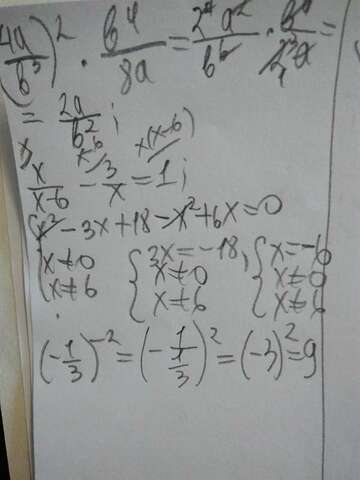 (4a/b³)² · b⁴/8a = 2⁴a²/b⁶ · b⁴/2³a =
= 2a/b² ;
x/(x-6) - 3/x = 1 ; x x-6 x(x-6)
x² - 3x + 18 - x² + 6x = 0
x ≠ 0 3x = -18, x = -6
x ≠ 6 x ≠ 0 x ≠ 0
x ≠ 6 x ≠ 6
(-1/3)⁻² = (-1/(1/3))² = (-3)² = 9